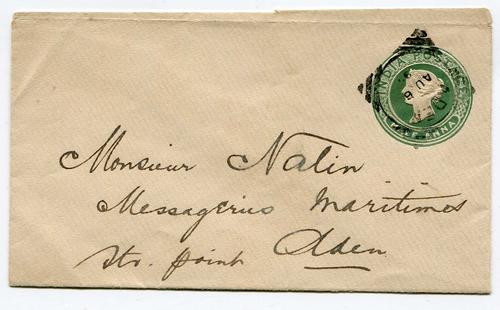 INDIA POSTAGE
HALF ANNA
ADEN
AU 6
Monsieur Natin
Messageries Maritimes
Str. Point Aden